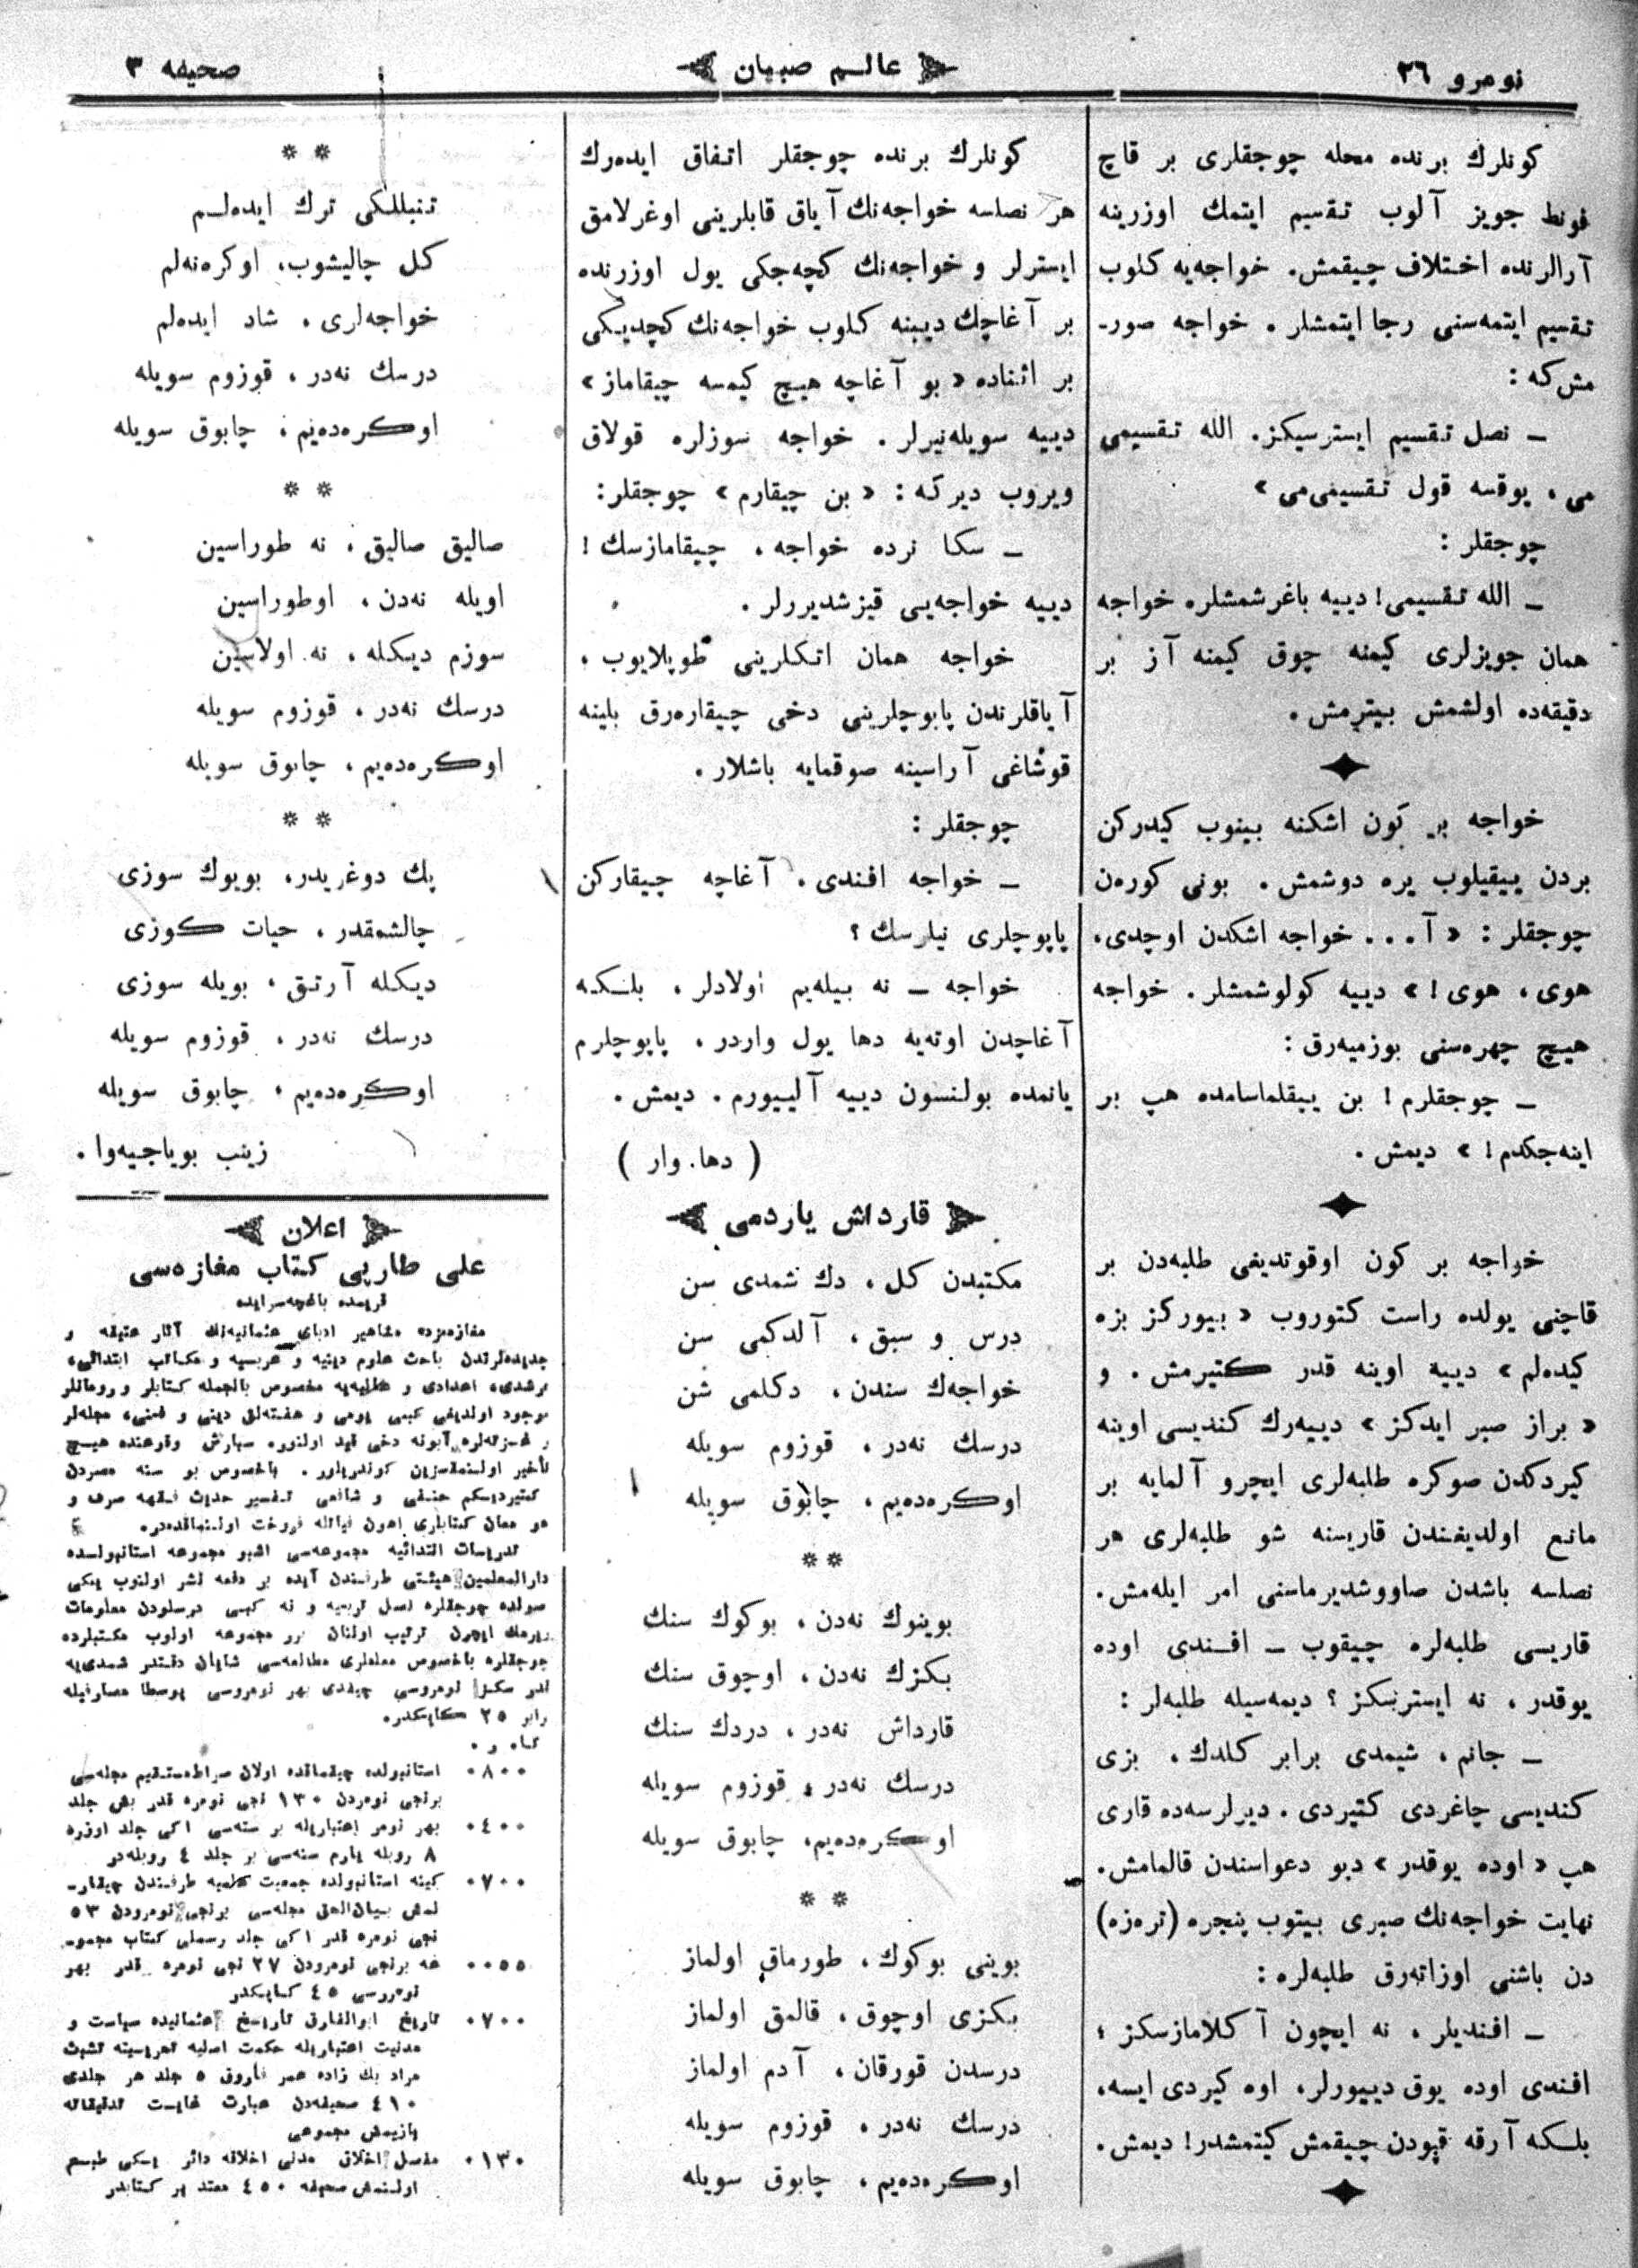 نومرو ٢٦
عالم صبيان
صحيفه ٣
كونلرك برنده محله چوجقلرى بر قاچ
فونط جويز آلوب تقسيم ايتمك اوزرينه
آرالرنده اختلاف چيقمش. خواجه‌يه كلوب
تقسيم ايتمه‌سنى رجا ايتمشلر. خواجه صور-
مش كه :
— نصل تقسيم ايسترسيكز. الله تقسيمى
مى، يوقسه قول تقسيمى‌مى »
چوجقلر :
— الله تقسيمى! دييه باغرشمشلر. خواجه
همان جويزلرى كيمنه چوق كيمنه آز بر
دقيقه‌ده اولشمش بيترمش.
خواجه بر كون اشكنه بينوب كيدركن
بردن ييقيلوب يره دوشمش. بونى كوره‌ن
چوجقلر : « آ... خواجه اشكدن اوچدى،
هوى، هوى! » دييه كولوشمشلر. خواجه
هيچ چهره‌سنى بوزميه‌رق :
— چوجقلرم! بن ييقلماسامده هپ بر
اينه‌جكدم! » ديمش.
خواجه بر كون اوقوتديغى طلبه‌دن بر
قاچنى يولده راست كتوروب « بيوركز بزه
كيده‌لم » دييه اوينه قدر كتيرمش. و
« براز صبر ايدكز » دييه‌رك كنديسى اوينه
كيردكدن صوكره طلبه‌لرى ايچرو آلمايه بر
مانع اولديغندن قاريسنه شو طلبه‌لرى هر
نصلسه باشدن صاووشديرماسنى امر ايله‌مش.
قاريسى طلبه‌لره چيقوب — افندى اوده
يوقدر، نه ايسترسكز؟ ديمه‌سيله طلبه‌لر :
— جانم، شيمدى برابر كلدك، بزى
كنديسى چاغردى كتيردى. ديرلرسه‌ده قارى
هپ « اوده يوقدر » ديو دعواسندن قالمامش.
نهايت خواجه‌نك صبرى بيتوب پنجره (تره‌زه)
دن باشنى اوزاته‌رق طلبه‌لره :
— افنديلر، نه ايچون آكلامازسكز؛
افندى اوده يوق دييورلر، اوه كيردى ايسه،
بلكه آرقه قپودن چيقمش كيتمشدر! ديمش.
كونلرك برنده چوجقلر اتفاق ايده‌رك
هر نصلسه خواجه‌نك آياق قابلرينى اوغرلامق
ايسترلر و خواجه‌نك كچه‌جكى يول اوزرنده
بر آغاچك ديبنه كلوب خواجه‌نك كچديكى
بر اثناده « بو آغاچه هيچ كيمسه چيقاماز »
دييه سويله‌نيرلر. خواجه سوزلره قولاق
ويروب ديركه : « بن چيقارم » چوجقلر:
— سكا نرده خواجه، چيقامازسك!
دييه خواجه‌يى قيزشديررلر.
خواجه همان اتكلرينى طوپلايوب،
آياقلرندن پابوچلرينى دخى چيقاره‌رق بلينه
قوشاغى آراسينه صوقمايه باشلار.
چوجقلر :
— خواجه افندى. آغاچه چيقاركن
پاپوچلرى نيلرسك؟
خواجه — نه بيله‌يم اولادلر، بلكه
آغاچدن اوته‌يه دها يول واردر، پاپوچلرم
يانمده بولنسون دييه آلييورم. ديمش.
( دها. وار )
قارداش ياردمى
مكتبدن كل، دك شمدى سن
درس و سبق، آلدكمى سن
خواجه‌ك سندن، دكلمى شن
درسك نه‌در، قوزوم سويله
اوكره‌ده‌يم، چابوق سويله
* *
بوينوك نه‌دن، بوكوك سنك
بكزك نه‌دن، اوچوق سنك
قارداش نه‌در، دردك سنك
درسك نه‌در، قوزوم سويله
اوكره‌ده‌يم، چابوق سويله
* *
بوينى بوكوك، طورماق اولماز
بكزى اوچوق، قالمق اولماز
درسدن قورقان، آدم اولماز
درسك نه‌در، قوزوم سويله
اوكره‌ده‌يم، چابوق سويله
* *
تنبللكى ترك ايده‌لم
كل چاليشوب، اوكره‌نه‌لم
خواجه‌لرى، شاد ايده‌لم
درسك نه‌در، قوزوم سويله
اوكره‌ده‌يم، چابوق سويله
* *
صاليق صاليق، نه طوراسين
اويله نه‌دن، اوطوراسين
سوزم ديكله، نه اولاسين
درسك نه‌در، قوزوم سويله
اوكره‌ده‌يم، چابوق سويله
* *
پك دوغريدر، بويوك سوزى
چالشمقدر، حيات كوزى
ديكله آرتق، بويله سوزى
درسك نه‌در، قوزوم سويله
اوكره‌ده‌يم، چابوق سويله
زينب بوياجيه‌وا.
اعلان
على طارپى كتاب مغازه‌سى
قريمده باغچه‌سرايده
مغازه‌مزده مشاهير ادباى عثمانيه‌نك آثار عتيقه و
جديده‌لرندن باحث علوم دينيه و عربيه و مكاتب ابتدائى،
رشدى، اعدادى و عاليه‌يه مخصوص بالجمله كتابلر و رومانلر
موجود اولديغى كبى يومى و هفته‌لق دينى و فنى، مجله‌لر
و غزته‌لره آبونه دخى قيد اولنور. سپارش وقوعنده هيچ
تأخير اولنمقسزين كوندريلور. باخصوص بو سنه مصردن
كتيرديكم حنفى و شافعى تفسير حديث فقهه صرف و
تدريسات ابتدائيه مجموعه‌سى اشبو مجموعه استانبولده
دارالمعلمين هيئتى طرفندن آيده بر دفعه نشر اولنوب يكى
اصولده چوجقلره نصل تربيه و نه كبى درسلردن معلومات
ويرمك ايچون ترتيب اولنان بر مجموعه اولوب مكتبلرده
چوجقلره باخصوص معلملرى مطالعه‌سى شايان دقتدر شمدى‌يه
قدر سكز نومروسى چيقدى بهر نومروسى پوسطا مصارفيله
برابر ٢٥ كاپكدر.
٠٨٠٠ استانبولده چيقماقده اولان صراط‌مستقيم مجله‌سى
برنجى نومردن ١٣٠ نجى نومره قدر بش جلد
٠٤٠٠ بهر نومر اعتباريله بر سنه‌سى اكى جلد اوزره
٨ روبله يارم سنه‌سى بر جلد ٤ روبله‌در
٠٧٠٠ كينه استانبولده جمعيت علميه طرفندن چيقار-
لمش بيان‌الحق مجله‌سى برنجى نومرودن ٥٣
نجى نومره قدر اكى جلد رسملى كتاب مجمو-
٠٠٥٥ عه برنجى نومرودن ٢٧ نجى نومره قدر بهر
نومروسى ٤٥ كاپيكدر
٠٧٠٠ تاريخ ابوالفاروق تاريخ عثمانيده سياست و
مدنيت اعتباريله حكمت اصليه تحريسينه تشبث
مراد بك زاده عمر فاروق ٥ جلد هر جلدى
٤١٠ صحيفه‌دن عبارت غايت تدقيقانه
يازيمش مجموعى
٠١٣٠ مفصل اخلاق مدنى اخلاقه دائر يكى طبع
اولنمش صحيفه ٤٥٠ معتد بر كتابدر